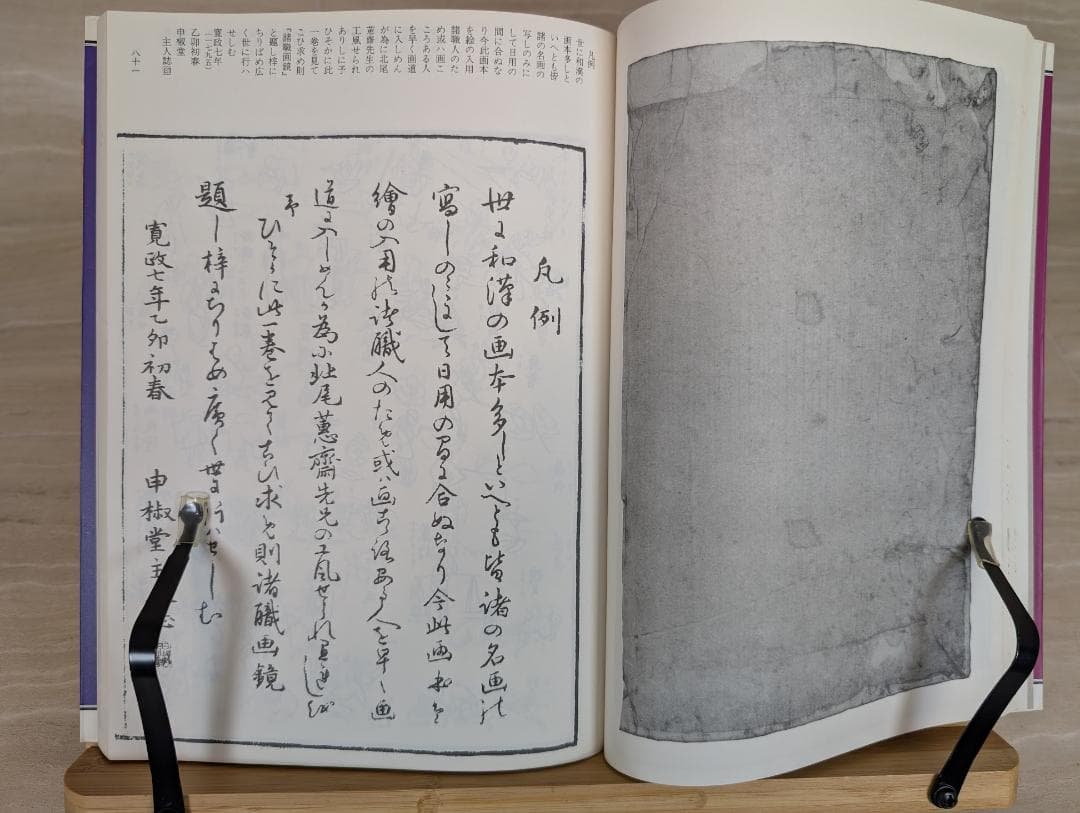 凡例
世に和漢の
画本多しと
いへとも皆
諸の名画の
写しのみに
して日用の
間に合ぬな
り今此画本
を絵の入用
諸職人のた
め或ハ画こ
ころある人
を早く画道
に入しめん
が為に北尾
蕙斎先生の
工風せられ
ありしに予
ひそかに此
一巻を見て
こひ求め則
『諸職画鏡』
と題し梓に
ちりばめ広
く世に行ハ
せしむ
寛政七年
(一七九五)
乙卯初春
申椒堂
主人誌㊞
八十一
凡例
世に和漢の画本多しといへとも皆諸の名画の
寫しのミにして日用の間に合ぬなり今此画本を
繪の入用の諸職人のため或ハ画こころある人を早く画
道に入しめんか為に北尾蕙齋先生の工風せられ
予ひそかに此一巻を見てこひ求め則諸職画鏡
題し梓にちりはめ廣く世に行ハせしむ
寛政七年乙卯初春 申椒堂主